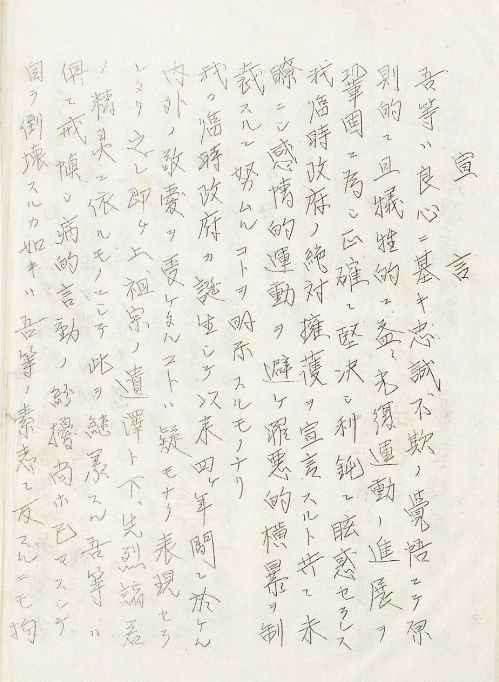 宣言
吾等ハ良心ニ基キ忠誠不欺ノ覺悟ニテ原
則的ニ且犠牲的ニ益々光復運動ノ進展ヲ
鞏固ニ為シ正確ニ堅決シ利鈍ニ眩惑セラレス
我臨時政府ノ絶対擁護ヲ宣言スルト共ニ未
瞭ニシ感情的運動ヲ避ケ罪悪的横暴ヲ制
裁スルニ努ムルコトヲ明示スルモノナリ
我カ臨時政府カ誕生シテ以来四ヶ年間ニ於ケル
内外ノ敬愛ヲ受ケタルコトハ疑モナク表現セラ
レタリ之レ即ケ上祖宗ノ遺澤ト下、先烈諸君
ノ精灵ニ依ルモノニシテ此ヲ継承スル吾等ハ
倶ニ戒慎シ病的言動ノ紛擾尚ホ已マスシテ
自ラ倒壊スルカ如キハ吾等ノ素志ニ反スルニモ拘